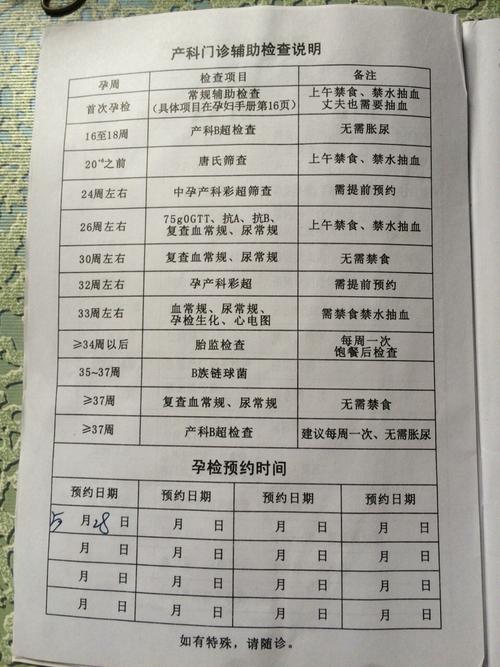 产科门诊辅助检查说明
孕周 检查项目 备注
首次孕检 常规辅助检查 上午禁食、禁水抽血
（具体项目在孕妇手册第16页） 丈夫也需要抽血
16至18周 产科B超检查 无需胀尿
20⁺⁶之前 唐氏筛查 上午禁食、禁水抽血
24周左右 中孕产科彩超筛查 需提前预约
26周左右 75gOGTT、抗A、抗B、 上午禁食、禁水抽血
复查血常规、尿常规
30周左右 复查血常规、尿常规 无需禁食
32周左右 孕产科彩超 需提前预约
33周左右 血常规、尿常规、 需禁食禁水抽血
孕检生化、心电图
≥34周以后 胎监检查 每周一次
饱餐后检查
35~37周 B族链球菌
≥37周 复查血常规、尿常规 无需禁食
≥37周 产科B超检查 建议每周一次、无需胀尿
孕检预约时间
预约日期 预约日期 预约日期 预约日期
5月28日 月 日 月 日 月 日
月 日 月 日 月 日 月 日
月 日 月 日 月 日 月 日
月 日 月 日 月 日 月 日
如有特殊，请随诊。